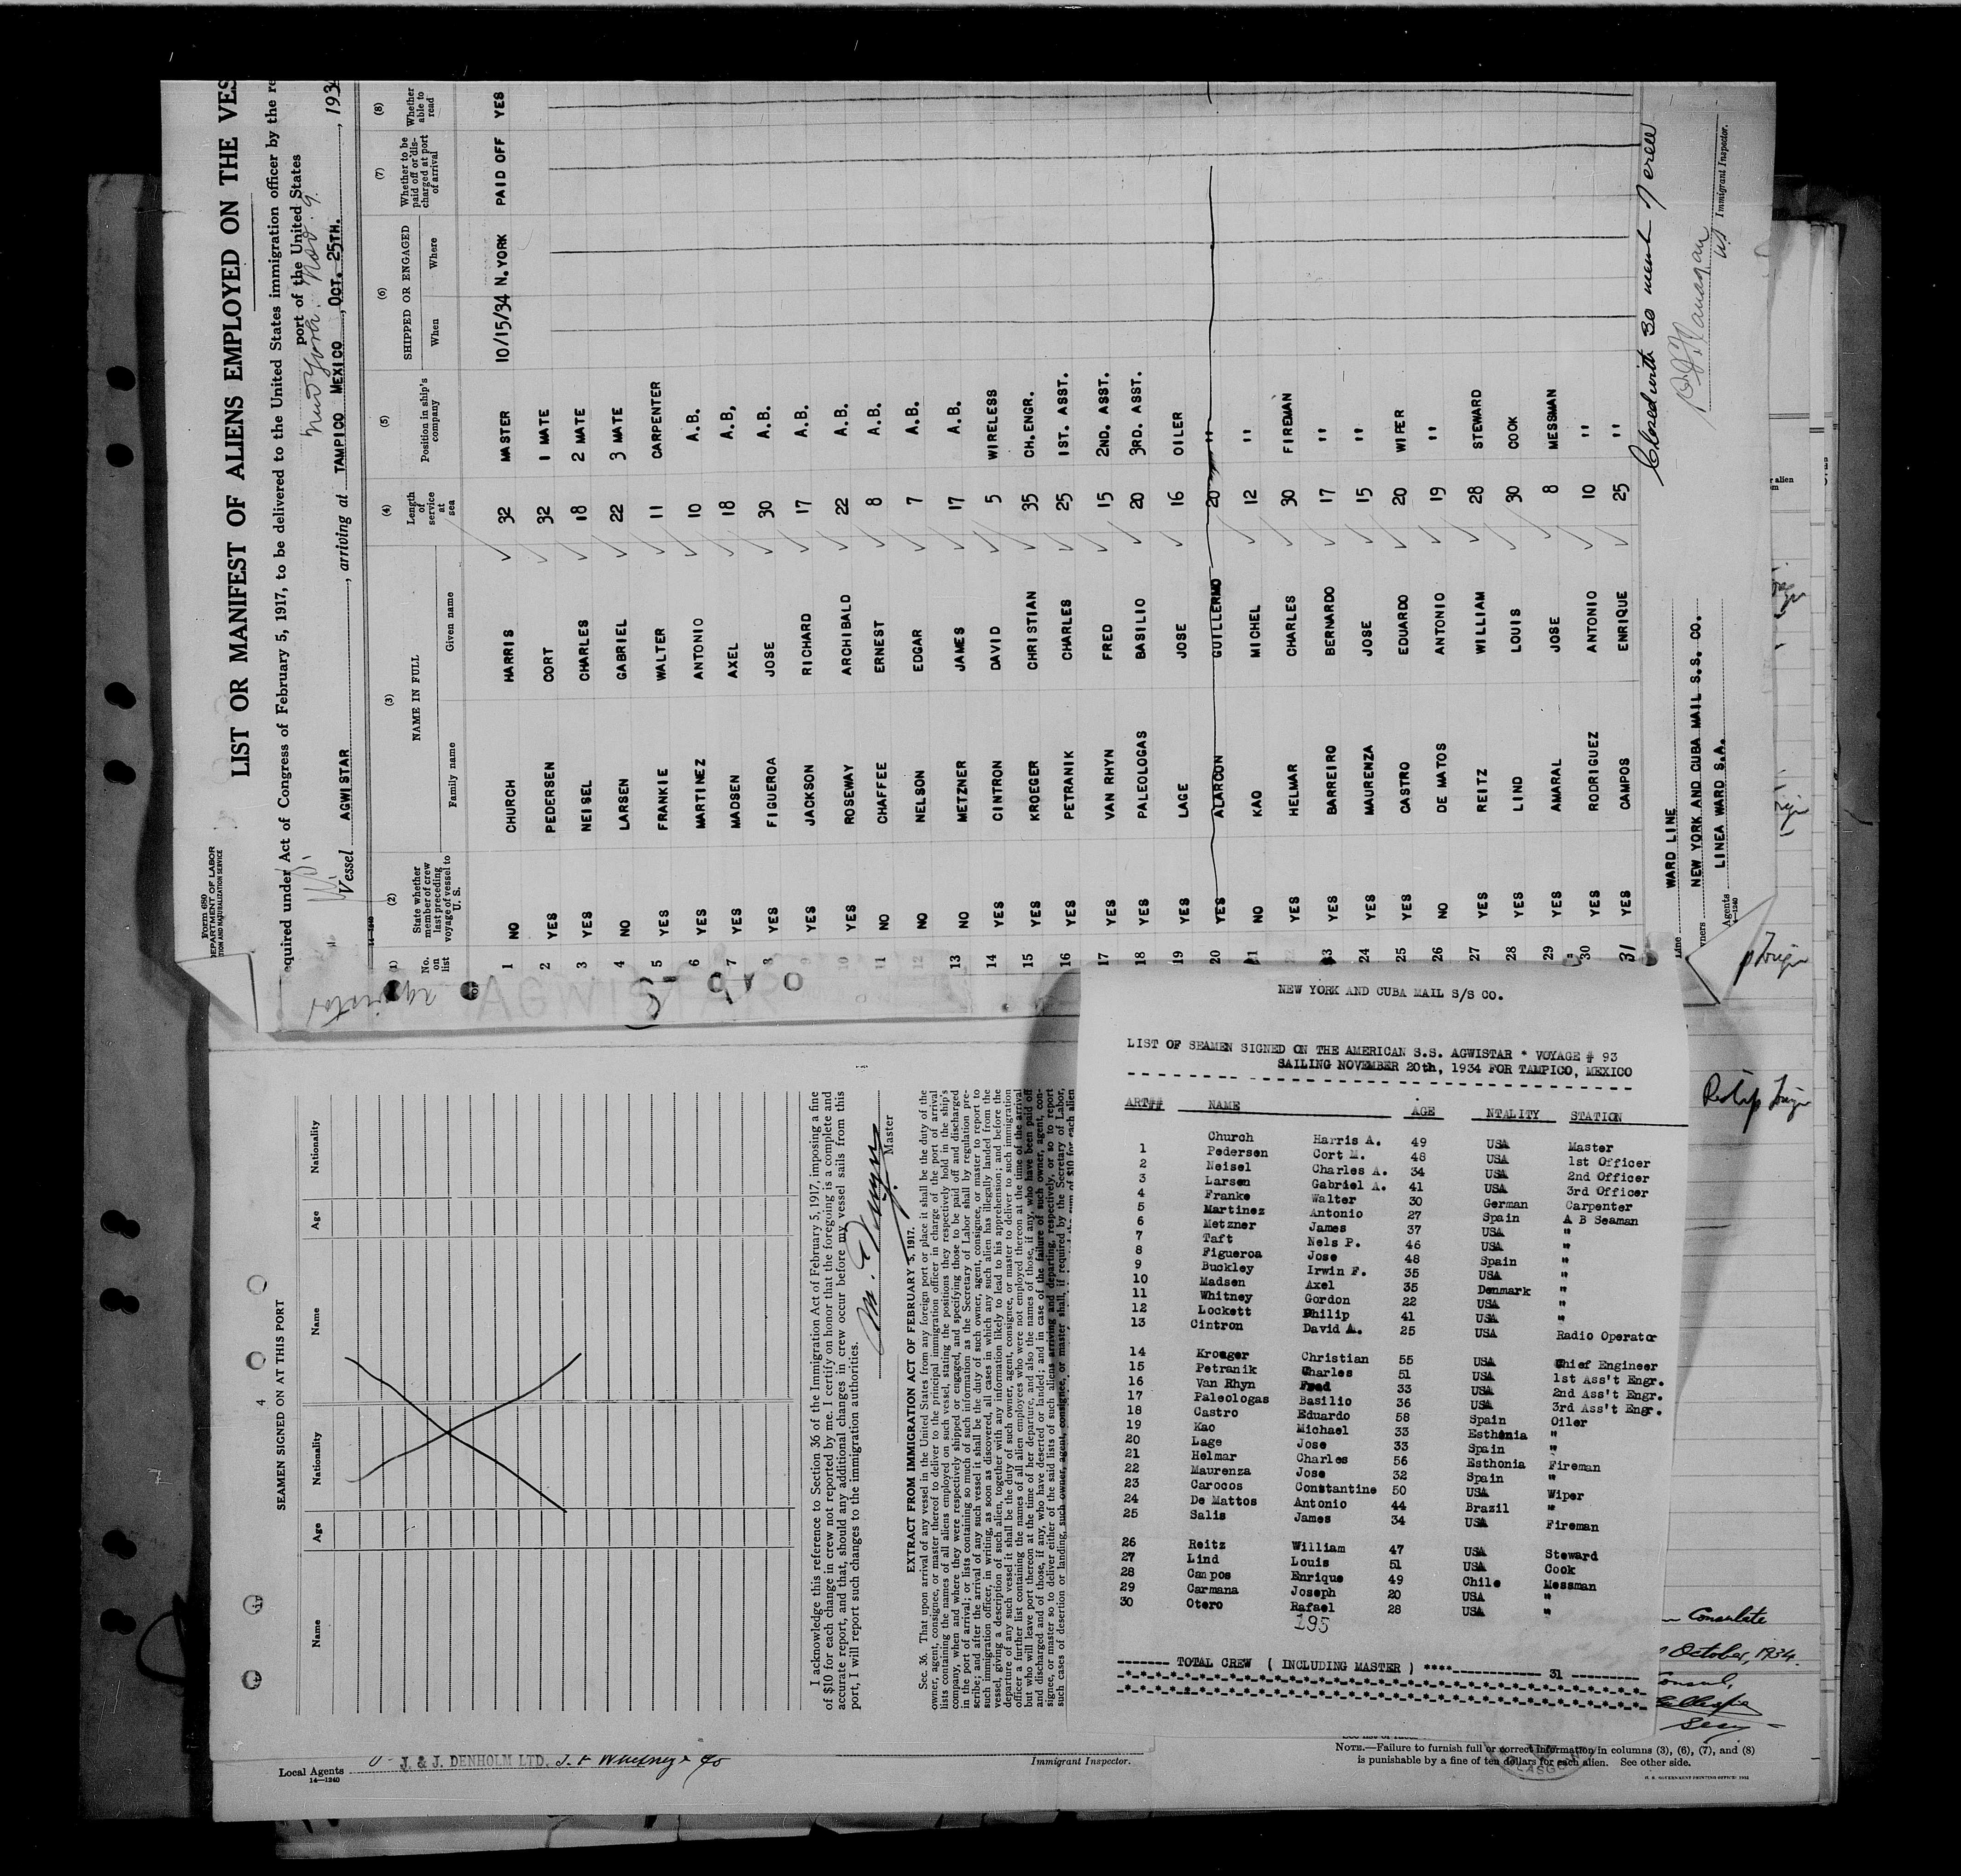 Form 680
DEPARTMENT OF LABOR
LIST OR MANIFEST OF ALIENS EMPLOYED ON THE VES
equired under Act of Congress of February 5, 1917, to be delivered to the United States immigration officer by the re
port of the United States
New York Nov. 9.
Vessel AGWISTAR, arriving at TAMPICO MEXICO, OCT. 25TH., 193
14-1240
(1) (2) (3) (4) (5) (6) (7) (8)
No. on list State whether member of crew last preceding voyage of vessel to U. S. NAME IN FULL Length of service at sea Position in ship's company SHIPPED OR ENGAGED Whether to be paid off or discharged at port of arrival Whether able to read
Family name Given name When Where
1 NO CHURCH HARRIS 32 MASTER 10/15/34 N.YORK PAID OFF YES
2 YES PEDERSEN CORT 32 1 MATE
3 YES NEISEL CHARLES 18 2 MATE
4 NO LARSEN GABRIEL 22 3 MATE
5 YES FRANKIE WALTER 11 CARPENTER
6 YES MARTINEZ ANTONIO 10 A.B.
7 YES MADSEN AXEL 18 A.B,
8 YES FIGUEROA JOSE 30 A.B.
9 YES JACKSON RICHARD 17 A.B.
10 YES ROSEWAY ARCHIBALD 22 A.B.
11 NO CHAFFEE ERNEST 8 A.B.
12 NO NELSON EDGAR 7 A.B.
13 NO METZNER JAMES 17 A.B.
14 YES CINTRON DAVID 5 WIRELESS
15 YES KROEGER CHRISTIAN 35 CH.ENGR.
16 YES PETRANIK CHARLES 25 1ST. ASST.
17 YES VAN RHYN FRED 15 2ND. ASST.
18 YES PALEOLOGAS BASILIO 20 3RD. ASST.
19 YES LAGE JOSE 16 OILER
20 YES ALARCON GUILLERMO 20 "
21 NO KAO MICHEL 12 "
22 YES HELMAR CHARLES 30 FIREMAN
23 YES BARREIRO BERNARDO 17 "
24 YES MAURENZA JOSE 15 "
25 YES CASTRO EDUARDO 20 WIPER
26 NO DE MATOS ANTONIO 19 "
27 YES REITZ WILLIAM 28 STEWARD
28 YES LIND LOUIS 30 COOK
29 YES AMARAL JOSE 8 MESSMAN
30 YES RODRIGUEZ ANTONIO 10 "
31 YES CAMPOS ENRIQUE 25 "
Closed with 30 memb of crew
Line WARD LINE
ners NEW YORK AND CUBA MAIL S.S. CO.
Agents LINEA WARD S.A.
14-1240
Immigrant Inspector.
Agwistar
AGWISTAR
4
SEAMEN SIGNED ON AT THIS PORT
Name Age Nationality Name Age Nationality
I acknowledge this reference to Section 36 of the Immigration Act of February 5, 1917, imposing a fine
of $10 for each change in crew not reported by me. I certify on honor that the foregoing is a complete and
accurate report, and that, should any additional changes in crew occur before my vessel sails from this
port, I will report such changes to the immigration authorities.
Master
EXTRACT FROM IMMIGRATION ACT OF FEBRUARY 5, 1917.
Sec. 36. That upon arrival of any vessel in the United States from any foreign port or place it shall be the duty of the
owner, agent, consignee, or master thereof to deliver to the principal immigration officer in charge of the port of arrival
lists containing the names of all aliens employed on such vessel, stating the positions they respectively hold in the ship's
company, when and where they were respectively shipped or engaged, and specifying those to be paid off and discharged
in the port of arrival; or lists containing so much of such information as the Secretary of Labor shall by regulation pre-
scribe; and after the arrival of any such vessel it shall be the duty of such owner, agent, consignee, or master to report to
such immigration officer, in writing, as soon as discovered, all cases in which any such alien has illegally landed from the
vessel, giving a description of such alien, together with any information likely to lead to his apprehension; and before the
departure of any such vessel it shall be the duty of such owner, agent, consignee, or master to deliver to such immigration
officer a further list containing the names of all alien employees who were not employed thereon at the time of the arrival
but who will leave port thereon at the time of her departure, and also the names of those, if any, who have been paid off
and discharged and of those, if any, who have deserted or landed; and in case of the failure of such owner, agent, con-
signee, or master so to deliver either of the said lists of such aliens arriving and departing, respectively, or so to report
such cases of desertion or landing, such owner, agent, consignee, or master shall, if required by the Secretary of Labor,
Local Agents J. & J. DENHOLM LTD.
14-1240
Immigrant Inspector.
NEW YORK AND CUBA MAIL S/S CO.
LIST OF SEAMEN SIGNED ON THE AMERICAN S.S. AGWISTAR * VOYAGE # 93
SAILING NOVEMBER 20th, 1934 FOR TAMPICO, MEXICO
ART## NAME AGE NTALITY STATION
Church Harris A. 49 USA Master
1 Pedersen Cort M. 48 USA 1st Officer
2 Neisel Charles A. 34 USA 2nd Officer
3 Larsen Gabriel A. 41 USA 3rd Officer
4 Franke Walter 30 German Carpenter
5 Martinez Antonio 27 Spain A B Seaman
6 Metzner James 37 USA "
7 Taft Nels P. 46 USA "
8 Figueroa Jose 48 Spain "
9 Buckley Irwin F. 35 USA "
10 Madsen Axel 35 Denmark "
11 Whitney Gordon 22 USA "
12 Lockett Philip 41 USA "
13 Cintron David A. 25 USA Radio Operator
14 Kroeger Christian 55 USA Chief Engineer
15 Petranik Charles 51 USA 1st Ass't Engr.
16 Van Rhyn Fred 33 USA 2nd Ass't Engr.
17 Paleologas Basilio 36 USA 3rd Ass't Engr.
18 Castro Eduardo 58 Spain Oiler
19 Kao Michael 33 Esthonia "
20 Lage Jose 33 Spain "
21 Helmar Charles 56 Esthonia Fireman
22 Maurenza Jose 32 Spain "
23 Carocos Constantine 50 USA Wiper
24 De Mattos Antonio 44 Brazil "
25 Salis James 34 USA Fireman
26 Reitz William 47 USA Steward
27 Lind Louis 51 USA Cook
28 Campos Enrique 49 Chile Messman
29 Carmana Joseph 20 USA "
30 Otero Rafael 28 USA "
195
TOTAL CREW ( INCLUDING MASTER ) **** 31
Consulate
October, 1934.
NOTE.—Failure to furnish full or correct information in columns (3), (6), (7), and (8)
is punishable by a fine of ten dollars for each alien. See other side.